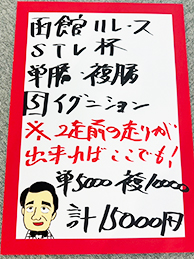 函館11レース
STV杯
単勝・複勝
⑤イグニション
※2走前の走りが
出来ればここでも!
単5000 複10000
計15000円